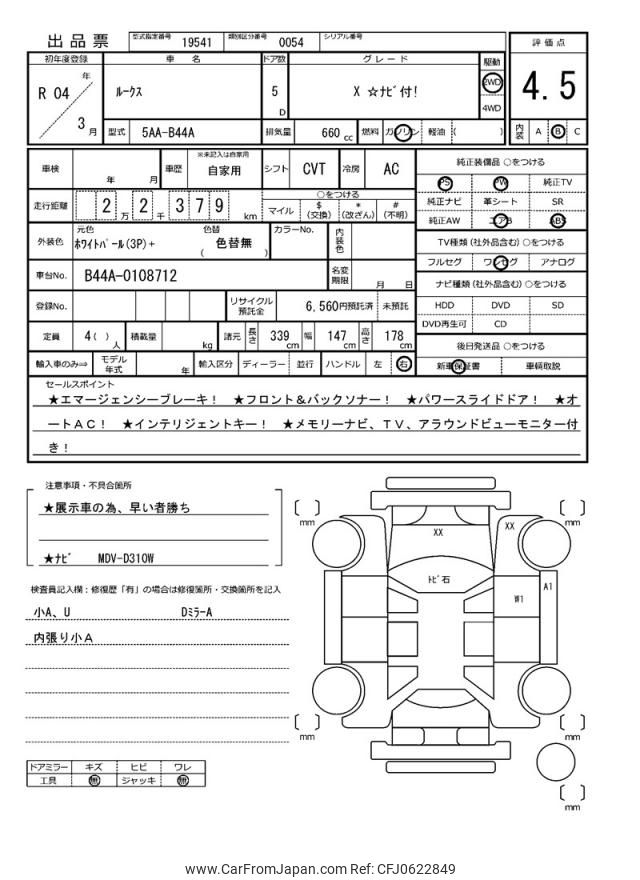 出品票
型式指定番号 19541 類別区分番号 0054 シリアル番号
評価点
4.5
内装 A B C
初年度登録 車名 ドア数 グレード 駆動
R 04 年 3 月
ルークス 5 D X ☆ナビ付! 2WD 4WD
型式 5AA-B44A 排気量 660 cc 燃料 ガソリン 軽油 ( )
車検 年 月 車歴 ※未記入は自家用 自家用 シフト CVT 冷房 AC
走行距離 2 万 2 千 3 7 9 km
○をつける
マイル $ (交換) * (改ざん) # (不明)
外装色 元色 ホワイトパール(3P)+ 色替 色替無 ( ) カラーNo. 内装色
車台No. B44A-0108712 名変期限 月 日
登録No. リサイクル預託金 6,560円預託済 未預託
定員 4( ) 人 積載量 kg 諸元 長さ 339 cm 幅 147 cm 高さ 178 cm
輸入車のみ⇒ モデル年式 年 輸入区分 ディーラー 並行 ハンドル 左 右
純正装備品 ○をつける
PS PW 純正TV
純正ナビ 革シート SR
純正AW エアB ABS
TV種類(社外品含む)○をつける
フルセグ ワンセグ アナログ
ナビ種類(社外品含む)○をつける
HDD DVD SD
DVD再生可 CD
後日発送品 ○をつける
新車保証書 車輌取説
セールスポイント
★エマージェンシーブレーキ! ★フロント&バックソナー! ★パワースライドドア! ★オ
ートAC! ★インテリジェントキー! ★メモリーナビ、TV、アラウンドビューモニター付
き!
注意事項・不具合箇所
★展示車の為、早い者勝ち
★ナビ MDV-D310W
検査員記入欄:修復歴「有」の場合は修復箇所・交換箇所を記入
小A、U Dミラ-A
内張り小A
ドアミラー キズ ヒビ ワレ
工具 無 ジャッキ 無
mm
mm
XX
XX
トビ石
W1
A1
mm
mm
mm
www.CarFromJapan.com Ref: CFJ0622849